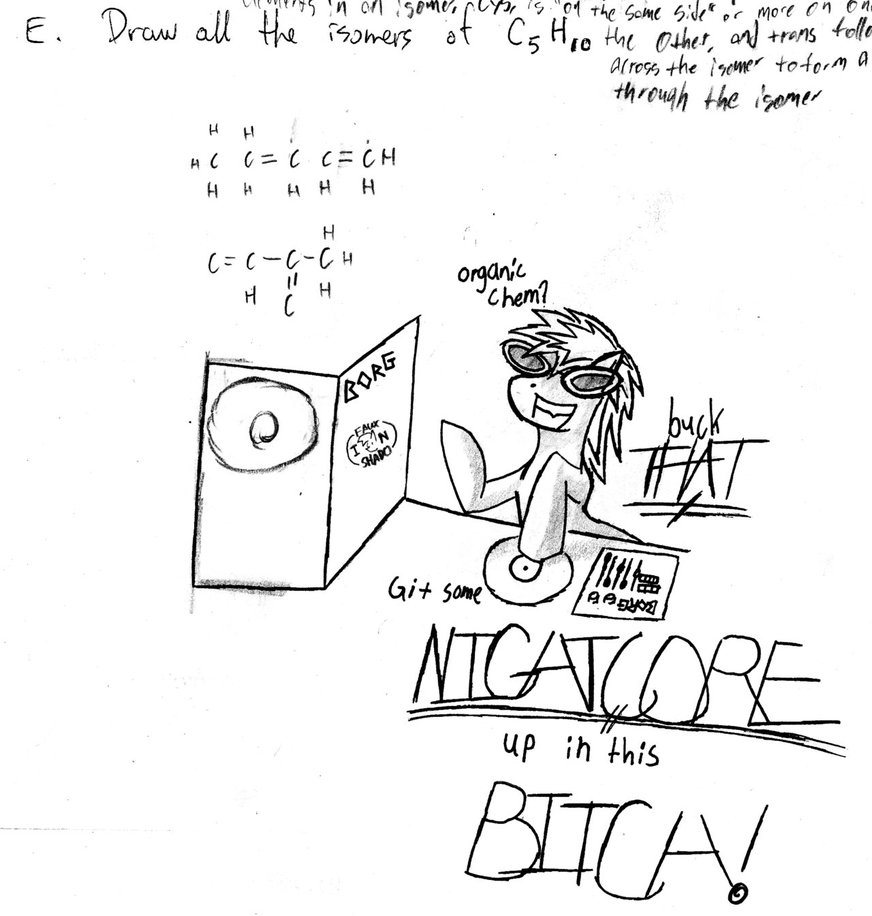 elements in an isomer, cys, is "on the same side" or more on one
E. Draw all the isomers of C5H10 the other, and trans follo
across the isomer to form a
through the isomer
H H
H C C = C C = C H
H H H H H
H
C = C - C - C H
H C H
organic
chem?
BORG
FAUX
I N
SHADO
buck
THAT
Git some
BORG
NIGATCORE
up in this
BITCH!